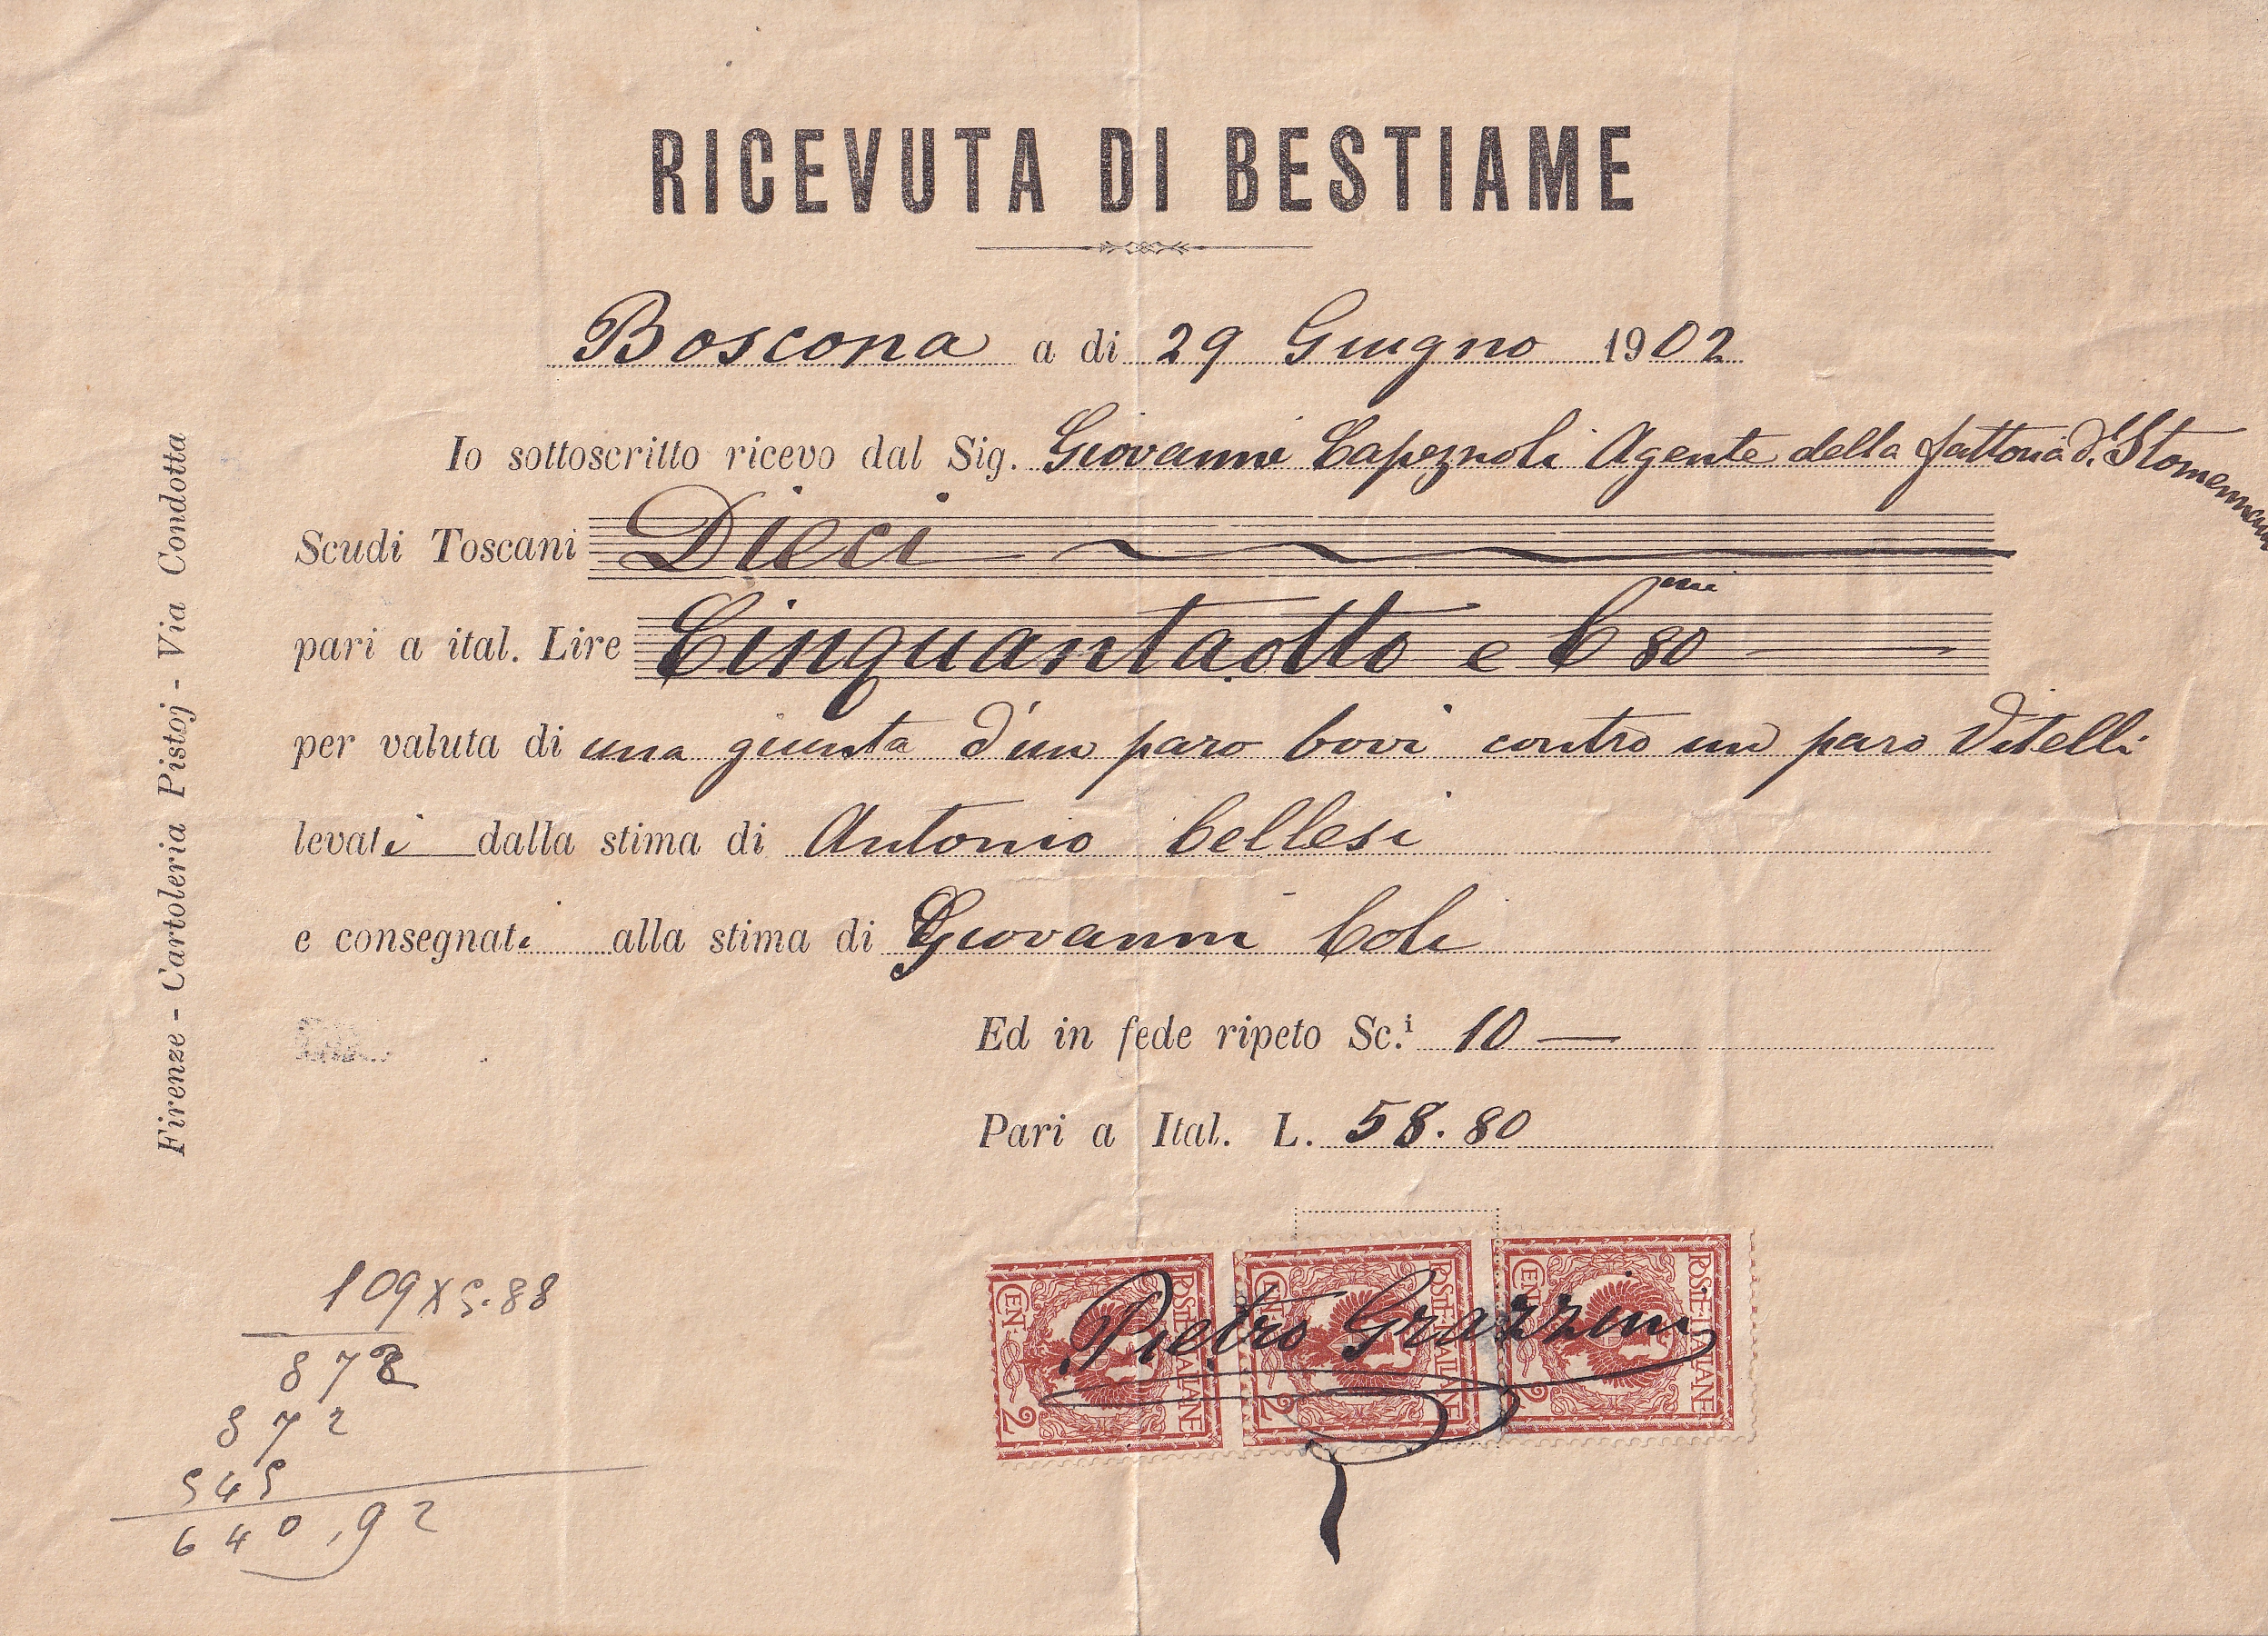 RICEVUTA DI BESTIAME
Boscona a di 29 Giugno 1902
Io sottoscritto ricevo dal Sig. Giovanni Capeznoli Agente della fattoria di
Scudi Toscani Dieci
pari a ital. Lire Cinquantaotto e Cmi 80
per valuta di una giunta d'un paro bovi contro un paro Vitelli
levati dalla stima di Antonio Cellesi
e consegnati alla stima di Giovanni Coli
Ed in fede ripeto Sc.i 10 —
Pari a Ital. L. 58.80
Pietro Grazzini
POSTE ITALIANE CEN. 2
POSTE ITALIANE CEN. 2
POSTE ITALIANE CEN. 2
109 x 5.88
872
872
545
640,92
Firenze - Cartoleria Pistoj - Via Condotta